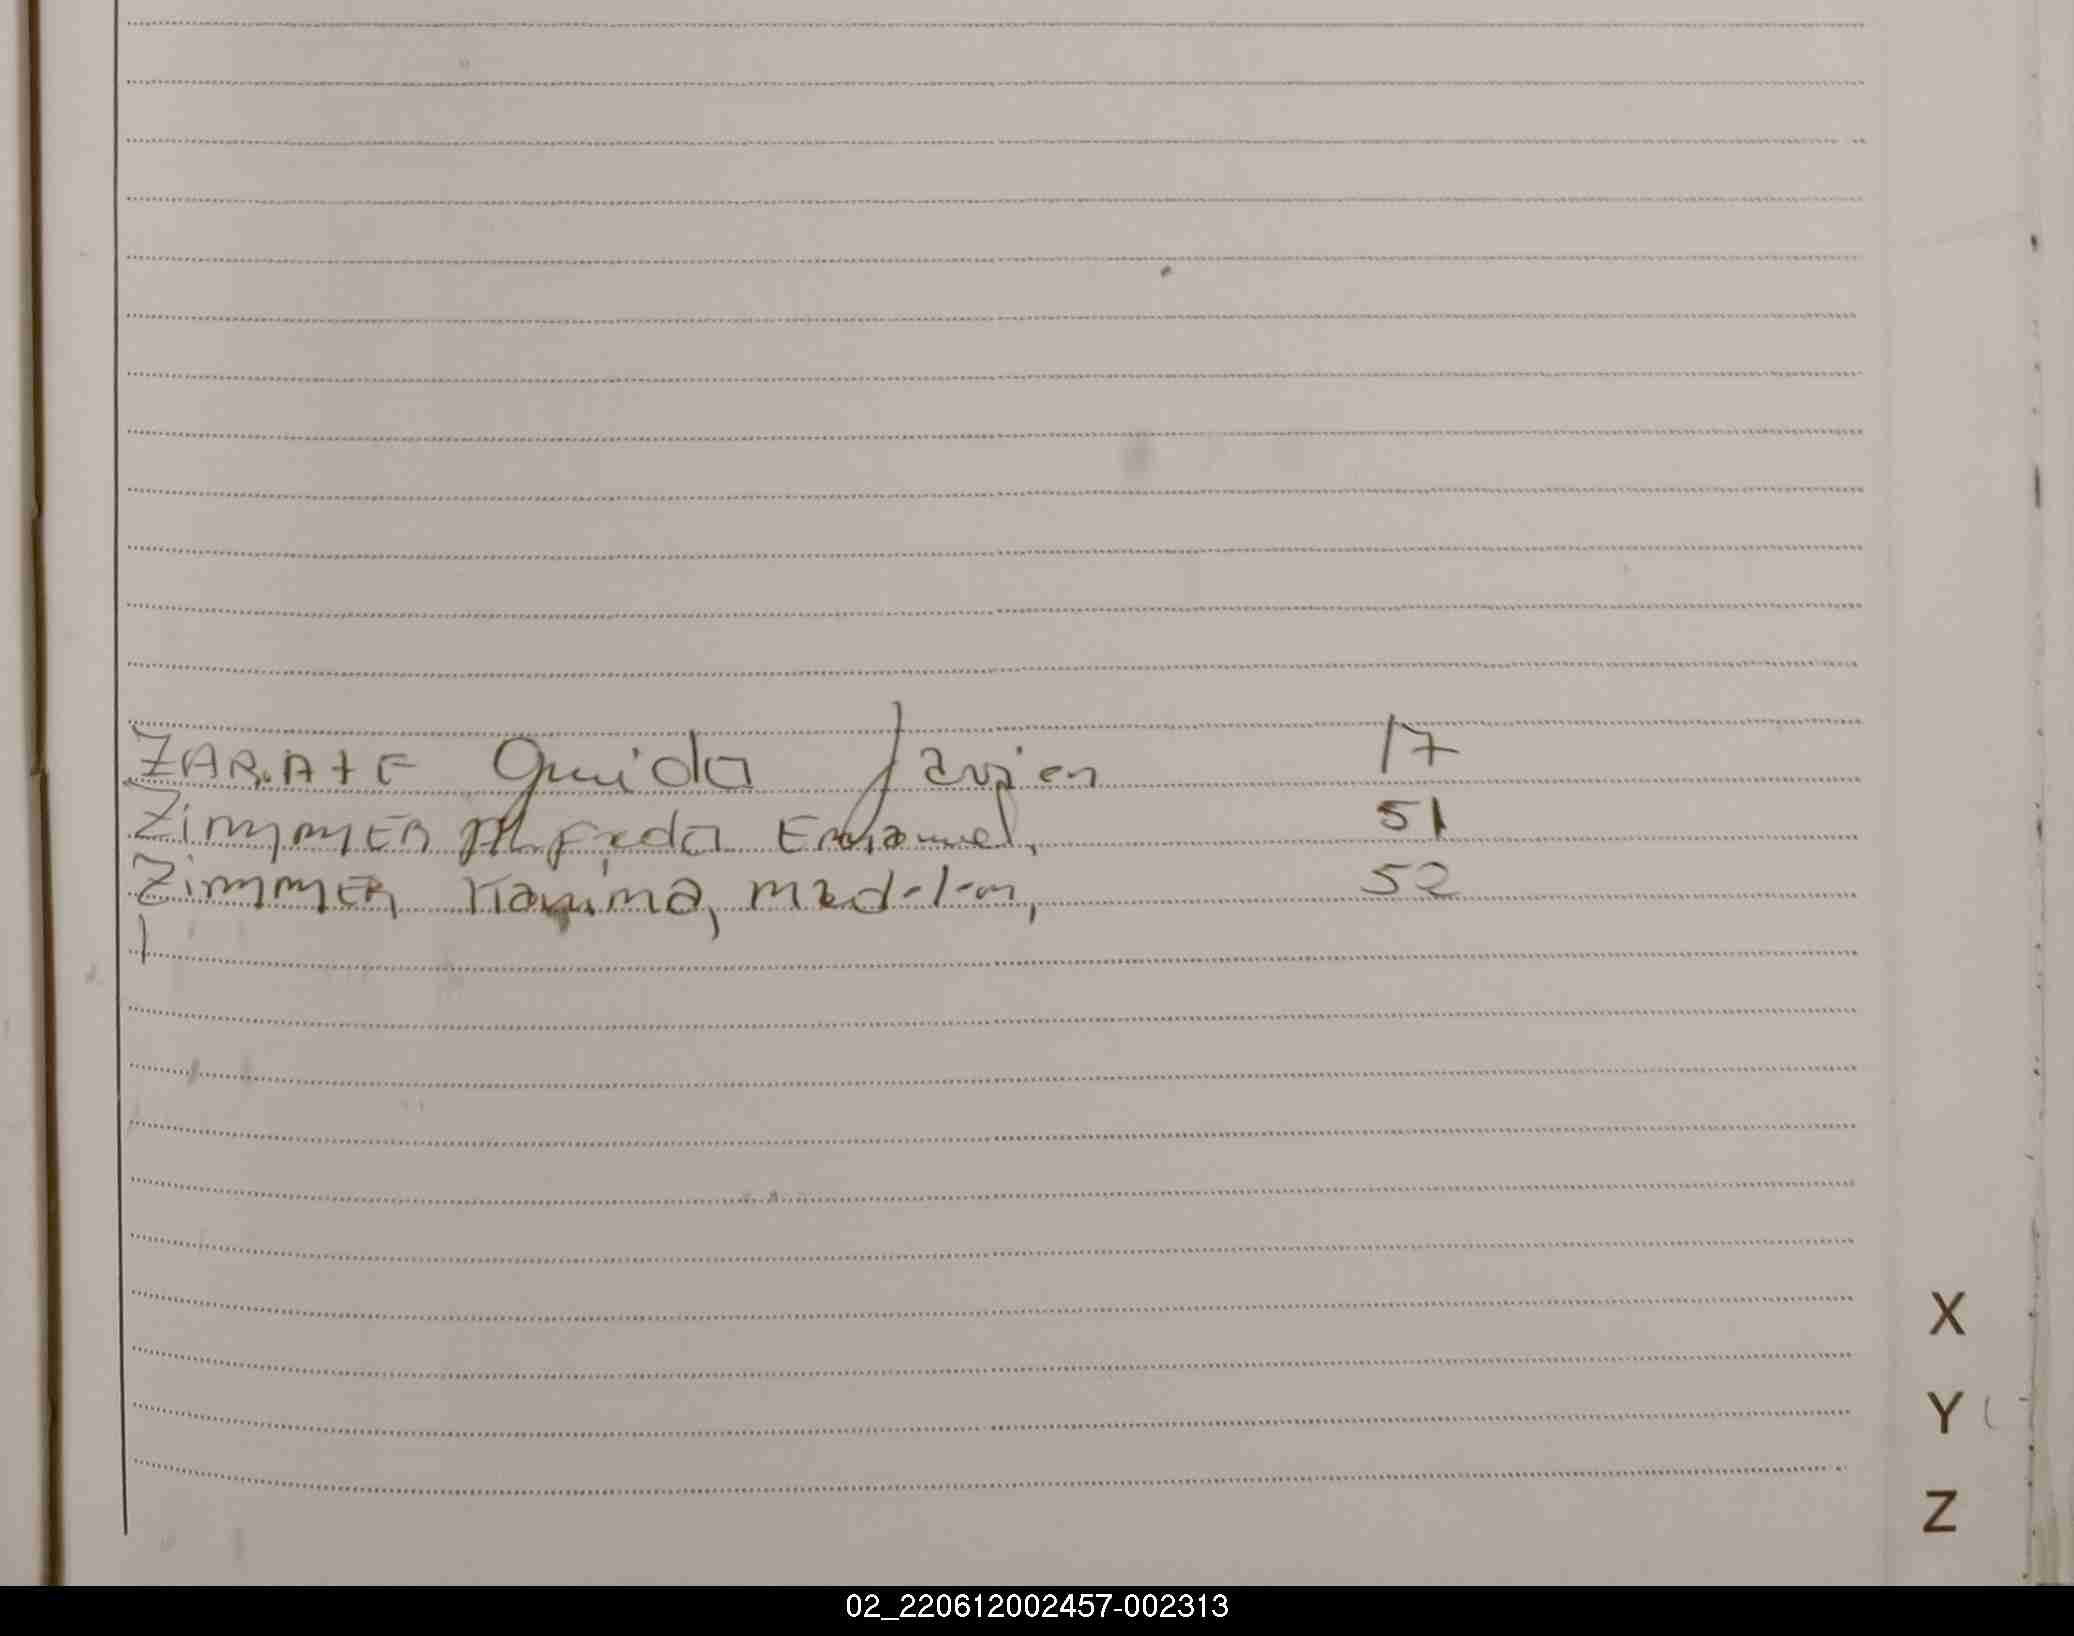 ZARATE Guido Javier 17
Zimmer Alfredo Emanuel, 51
Zimmer Karina, Madelen, 52
X
Y
Z
02_220612002457-002313